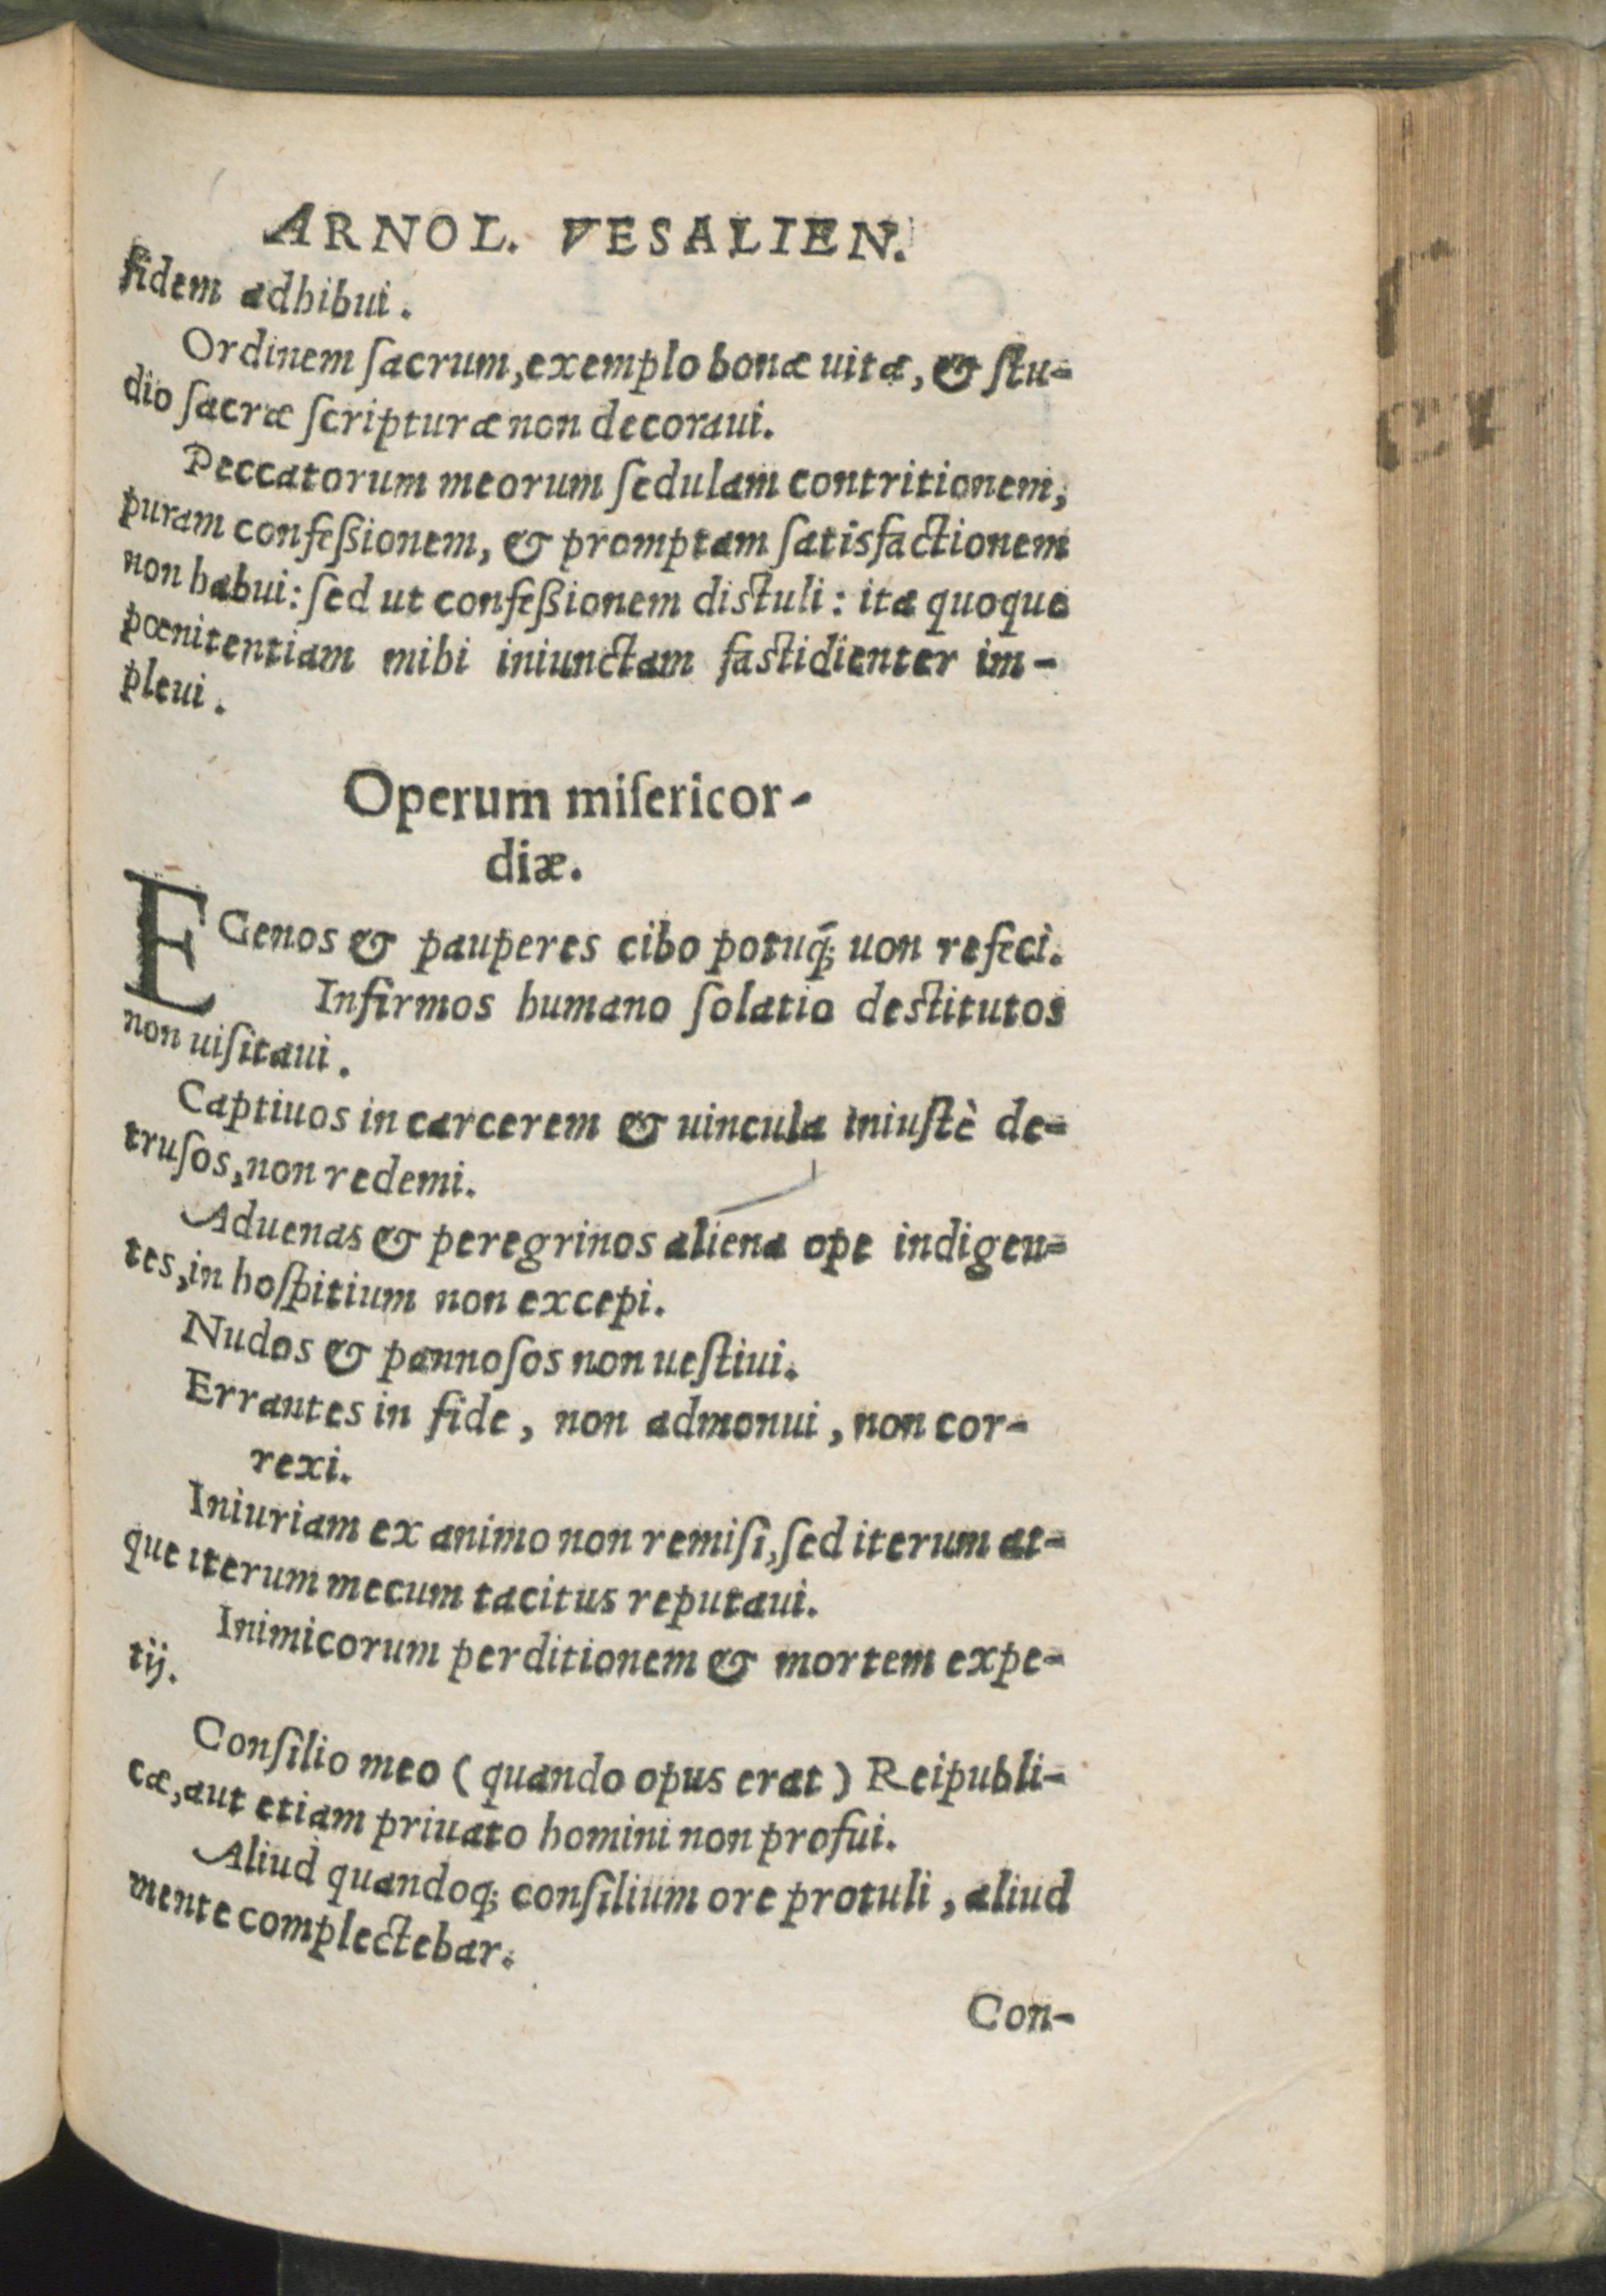 ARNOL. VESALIEN.
fidem adhibui.
Ordinem ſacrum, exemplo bonæ uitæ, & ſtu-
dio ſacræ ſcripturæ non decoraui.
Peccatorum meorum ſedulam contritionem,
puram confeſsionem, & promptam ſatisfactionem
non habui: ſed ut confeſsionem diſtuli: ita quoque
pœnitentiam mihi iniunctam faſtidienter im-
pleui.
Operum miſericor-
diæ.
EGenos & pauperes cibo potuq́; uon refeci.
Infirmos humano ſolatio deſtitutos
non uiſitaui.
Captiuos in carcerem & uincula iniuſtè de-
truſos, non redemi.
Aduenas & peregrinos aliena ope indigen-
tes, in hoſpitium non excepi.
Nudos & pannoſos non ueſtiui.
Errantes in fide, non admonui, non cor-
rexi.
Iniuriam ex animo non remiſi, ſed iterum at-
que iterum mecum tacitus reputaui.
Inimicorum perditionem & mortem expe-
tij.
Conſilio meo (quando opus erat) Reipubli-
cæ, aut etiam priuato homini non profui.
Aliud quandoq; conſilium ore protuli, aliud
mente complectebar.
Con-